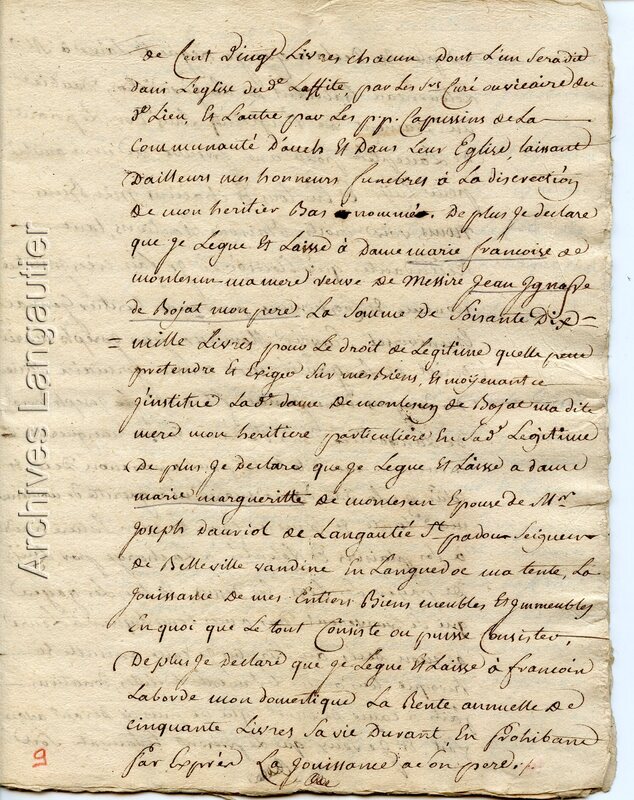 de Cent Vingt Livres chacun dont L'un sera dit
dans L'eglise du de Laffite, par Les Srs Curé ou vicaire du
de Lieu, Et L'autre par Les pp. Capussins de La
Communauté d'auch Et Dans Leur Eglise, laissant
D'ailleurs mes honneurs funebres à La discrection
de mon heritier Bas nommée. De plus Je declare
que je Legue Et Laisse à Dame marie francoise de
montesun ma mere veuve de Messire Jean Ignasse
de Bojat mon pere La Somme de Soisante Dix=
= mille Livres pour Le droit de Legitime quelle peut
pretendre Et Exiger Sur mes Biens, Et moÿenant ce
j'institue La de dame De montesun de Bojat ma dite
mere mon heritiere particulière En Sa de Legitime
De plus Je Declare que je Legue Et Laisse a dame
marie margueritte de montesun Epouse de Mr
Joseph Dauriol de Langautié St padou Seigneur
de Belleville vandine En Languedoc ma tente, La
Jouissance de mes Entiers Biens meubles Et Immeubles
En quoi que Le tout Consiste ou puisse Consister,
De plus Je Declare que je Legue Et Laisse à francoin
Laborde mon domestique La Rente annuelle de
cinquante Livres Sa vie Durant, En prohibant
Par Exprés La Jouissance a son pere.
Archives Langautier